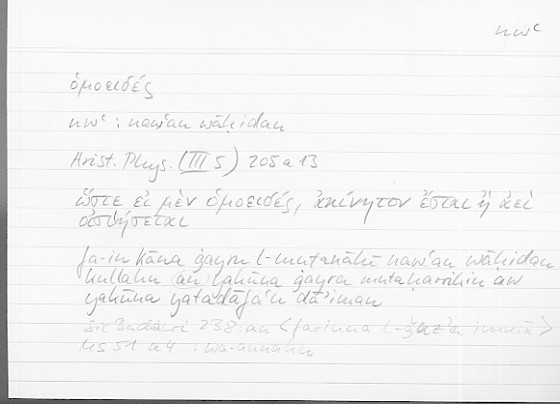 nwʿ
ὁμοειδές
nwʿ : nawʿan wāḥidan
Arist. Phys. (III 5) 205 a 13
ὥστε εἰ μὲν ὁμοειδές, ἀκίνητον ἔσται ἢ ἀεὶ
οἰσθήσεται
fa-in kāna ġayru l-mutanāhī nawʿan wāḥidan
kullahu (an) yakūna ġayra mutaḥarrikin aw
yakūna yatadāfaʿu dāʾiman
Sic Badawī 238: an <fa-inna l-ǧuzʾa immā>
MS 51 a 4 : wa-annahu